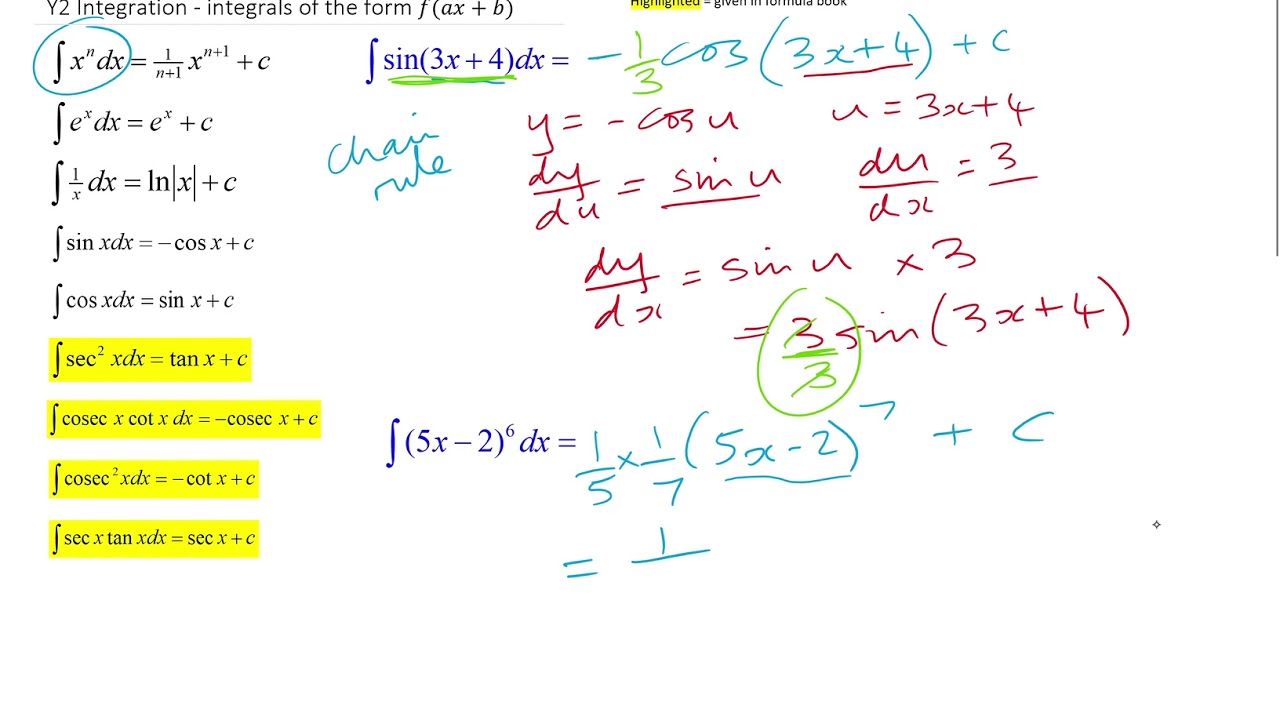 Y2 Integration - integrals of the form f(ax + b)
Highlighted = given in formula book
∫ xⁿ dx = 1/(n+1) xⁿ⁺¹ + c
∫ eˣ dx = eˣ + c
∫ 1/x dx = ln|x| + c
∫ sin xdx = −cos x + c
∫ cos xdx = sin x + c
∫ sec² xdx = tan x + c
∫ cosec x cot x dx = −cosec x + c
∫ cosec² xdx = −cot x + c
∫ sec x tan xdx = sec x + c
∫ sin(3x + 4)dx = − 1/3 cos (3x+4) + c
chain
rule
y = - cos u u = 3x+4
dy/du = sin u du/dx = 3
dy/dx = sin u × 3
= 3/3 sin (3x+4)
∫ (5x − 2)⁶ dx = 1/5 × 1/7 (5x - 2)⁷ + c
= 1